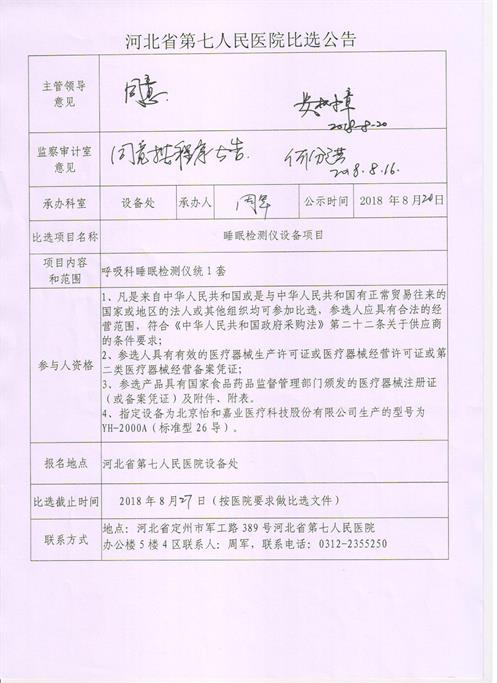 河北省第七人民医院比选公告
主管领导
意见
同意
2018-8-20
监察审计室
意见
同意按程序公告.
2018.8.16.
承办科室 设备处 承办人 周军 公示时间 2018 年 8 月 20 日
比选项目名称 睡眠检测仪设备项目
项目内容
和范围
呼吸科睡眠检测仪统 1 套
参与人资格
1、凡是来自中华人民共和国或是与中华人民共和国有正常贸易往来的
国家或地区的法人或其他组织均可参加比选，参选人应具有合法的经
营范围，符合《中华人民共和国政府采购法》第二十二条关于供应商
的条件要求；
2、参选人具有有效的医疗器械生产许可证或医疗器械经营许可证或第
二类医疗器械经营备案凭证；
3、参选产品具有国家食品药品监督管理部门颁发的医疗器械注册证
（或备案凭证）及附件、附表。
4、指定设备为北京怡和嘉业医疗科技股份有限公司生产的型号为
YH-2000A（标准型 26 导）。
报名地点 河北省第七人民医院设备处
比选截止时间 2018 年 8 月 27 日（按医院要求做比选文件）
联系方式
地点：河北省定州市军工路 389 号河北省第七人民医院
办公楼 5 楼 4 区联系人：周军，联系电话：0312-2355250